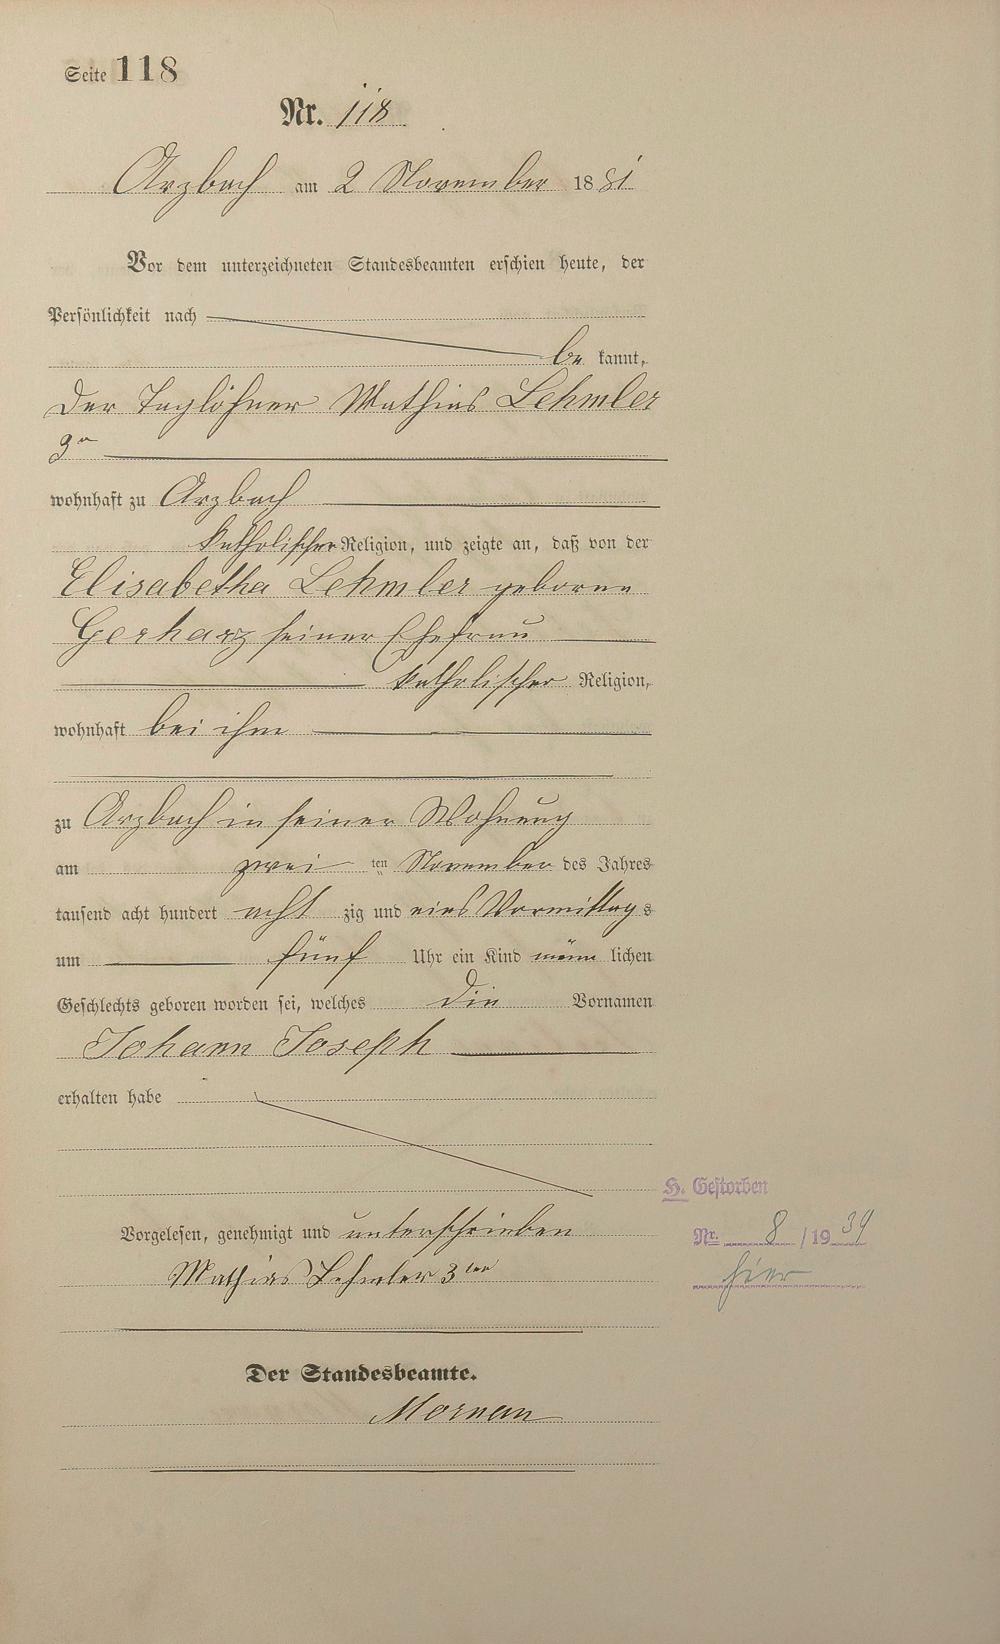 Seite 118
Nr. 118
Arzbach am 2 November 1881
Vor dem unterzeichneten Standesbeamten erschien heute, der
Persönlichkeit nach
be kannt,
der Taglöhner Mathias Lehmler
3r
wohnhaft zu Arzbach
katholischer Religion, und zeigte an, daß von der
Elisabetha Lehmler geborne
Gerharz seiner Ehefrau
katholischer Religion,
wohnhaft bei ihm
zu Arzbach in seiner Wohnung
am zwei ten November des Jahres
tausend acht hundert acht zig und eins Vormittags
um fünf Uhr ein Kind männ lichen
Geschlechts geboren worden sei, welches die Vornamen
Johann Joseph
erhalten habe
Vorgelesen, genehmigt und unterschrieben
Mathias Lehmler 3ter
H. Gestorben
Nr. 8 /1939
hier
Der Standesbeamte.